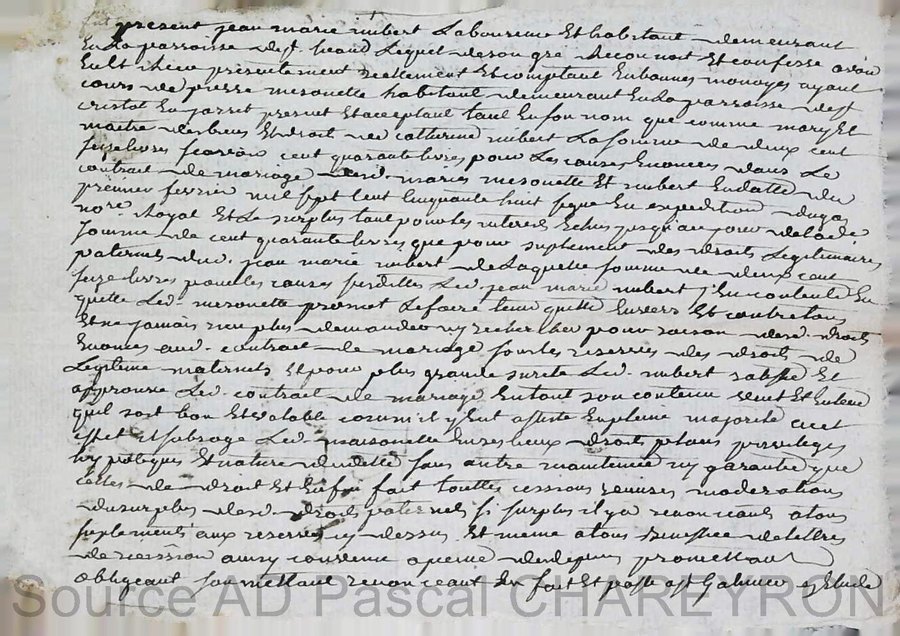 fut present jean marie mibert Laboureur Et habitant demeurant
En La parroisse de st. heand Lequel de son gré Reconnoit Et confesse avoir
Eu Et Receu présentement reellement Et comptant En bonnes monoyes ayant
cours de pierre mesonette habitant demeurant En La parroisse de st
cristot En jarret present Et acceptant tant En son nom que comme mary Et
maitre des biens Et droit de catterine mibert La somme de deux cent
seize livres scavoir cent quarante livres pour Les causes Enoncées dans Le
contrait de mariage desd. mariés mesonette Et mibert En datte du
premier fevrier mil sept cent cinquante huit signé En expedition
nore. Royal Et Le surplus tant pour les interets Echus jusqu'au jour de lad.
somme de cent quarante livres que pour suplement des droits Legitimaires
paternels dud. jean marie mibert de Laquelle somme de deux cent
seize livres pour les causes susdittes Led. jean marie mibert s'En contente En
quitte Led. mesonette promet Le faire tenir quitte Envers Et contre tous
Et ne jamais rien plus demander ny rechercher pour raison desd. droits
Enoncés aud. contrait de mariage sous les reserves des droits de
Legitime maternels Et pour plus grande sureté Led. mibert ratiffie Et
approuve Led. contrait de mariage En tout son contenu veut Et Entend
quil soit bon Et valable comme s'il y Eut assisté En pleine majorité a cet
effet il subroge Led. maisonette En ses lieux droits places privileges
hypoteques Et nature de dette sans autre maintenue ny garantie que
celles de droit Et En fin fait touttes cessions remises moderations
du surplus desd. droits paternels si surplus il y a renonceants a tous
suplements aux reserves cy dessus Et meme a tous Benefice de lettres
de rescision ainsy convenu a peine de depens promettant
obligeant soumettant renonceant fait Et passé a st Galmier Etude
Source AD Pascal CHAREYRON